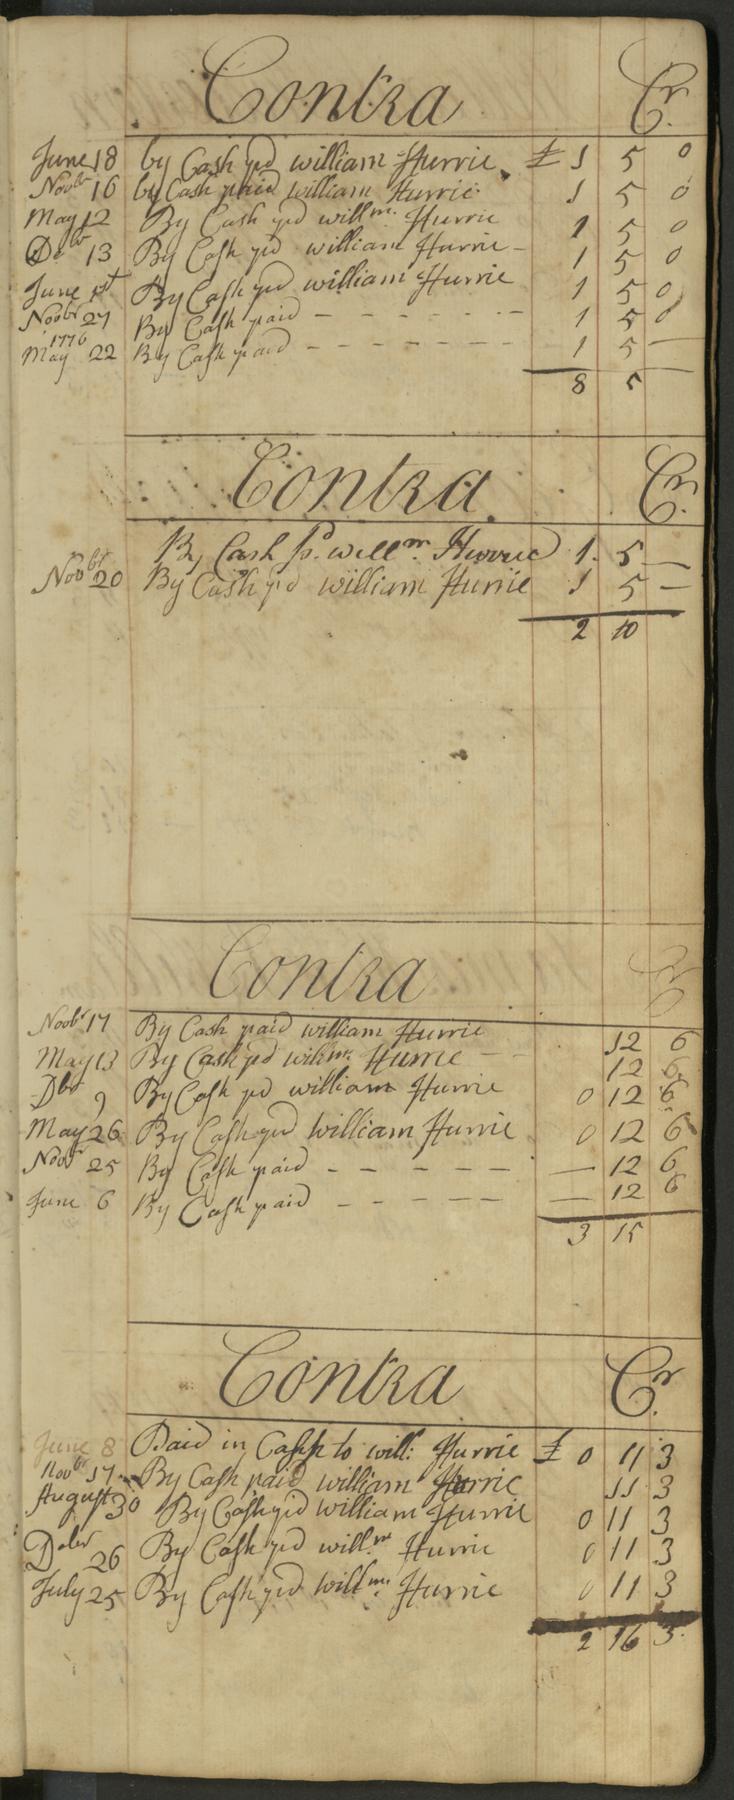 Contra Cr.
June 18 by Cash pd william Hurrie £ 1 5 0
Novbr 16 by Cash paid william Hurrie 1 5 0
May 12 By Cash pd willm. Hurrie 1 5 0
Debr 13 By Cash pd william Hurrie - 1 5 0
June 1st By Cash pd william Hurrie 1 5 0
Novbr 27 By Cash paid - - - - - - 1 5 0
1776
May 22 By Cash paid - - - - - - 1 5 —
8 5 —
Contra Cr.
By Cash pd. willm. Hurrie 1. 5 —
Novbr 20 By Cash pd william Hurrie 1 5 —
2 10
Contra Cr
Novbr 17 By Cash paid william Hurrie 12 6
May 13 By Cash pd willm Hurrie - - 12 6
Dbr 9 By Cash pd william Hurrie 0 12 6
May 26 By Cash pd william Hurrie 0 12 6
Novbr 25 By Cash paid - - - - - — 12 6
June 6 By Cash paid - - - - - — 12 6
3 15
Contra Cr.
June 8 Paid in Cash to will: Hurrie £ 0 11 3
Novbr 17 By Cash paid william Hurrie 11 3
August 30 By Cash pd william Hurrie 0 11 3
Debr 26 By Cash pd willm Hurrie 0 11 3
July 25 By Cash pd willm. Hurrie 0 11 3
2 16 3